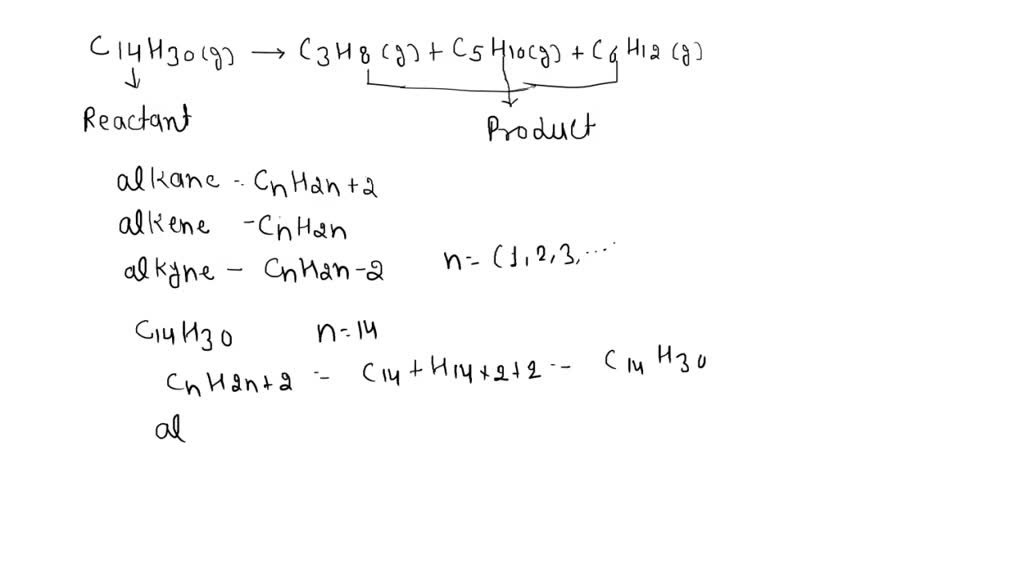 C14H30(g) → C3H8(g) + C5H10(g) + C6H12(g)
Reactant
Product
alkane - CnH2n+2
alkene - CnH2n
alkyne - CnH2n-2 n = (1,2,3,....
C14H30 n=14
CnH2n+2 = C14+H14×2+2 = C14H30
al